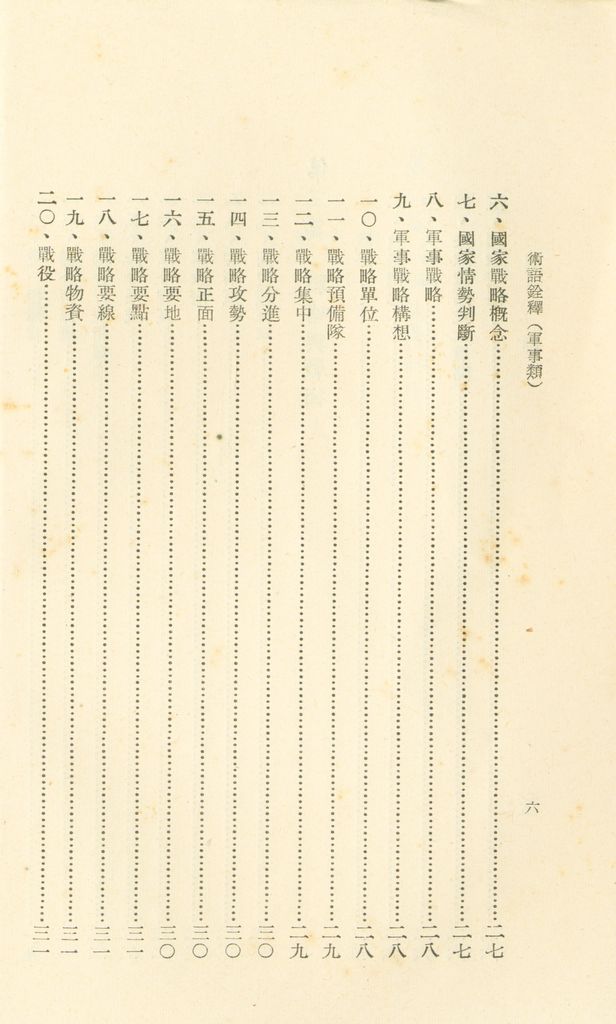 術語銓釋（軍事類）
六
六、國家戰略概念……二七
七、國家情勢判斷……二七
八、軍事戰略……二八
九、軍事戰略構想……二八
一〇、戰略單位……二八
一一、戰略預備隊……二九
一二、戰略集中……二九
一三、戰略分進……三〇
一四、戰略攻勢……三〇
一五、戰略正面……三〇
一六、戰略要地……三〇
一七、戰略要點……三一
一八、戰略要線……三一
一九、戰略物資……三一
二〇、戰役……三一